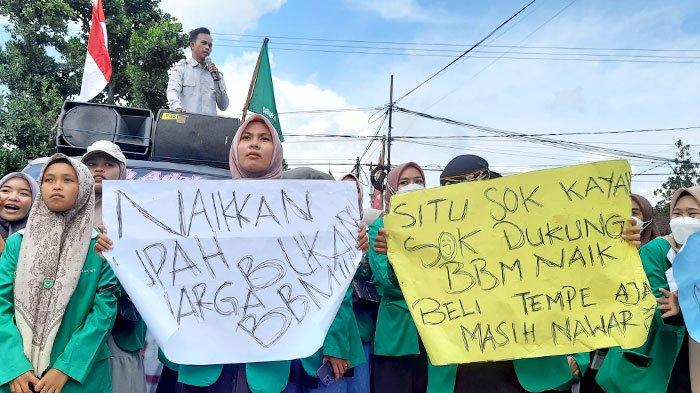 NAIKKAN
UPAH BUKAN
HARGA BBM!!!
SITU SOK KAYA
SOK DUKUNG
BBM NAIK
BELI TEMPE AJA
MASIH NAWAR